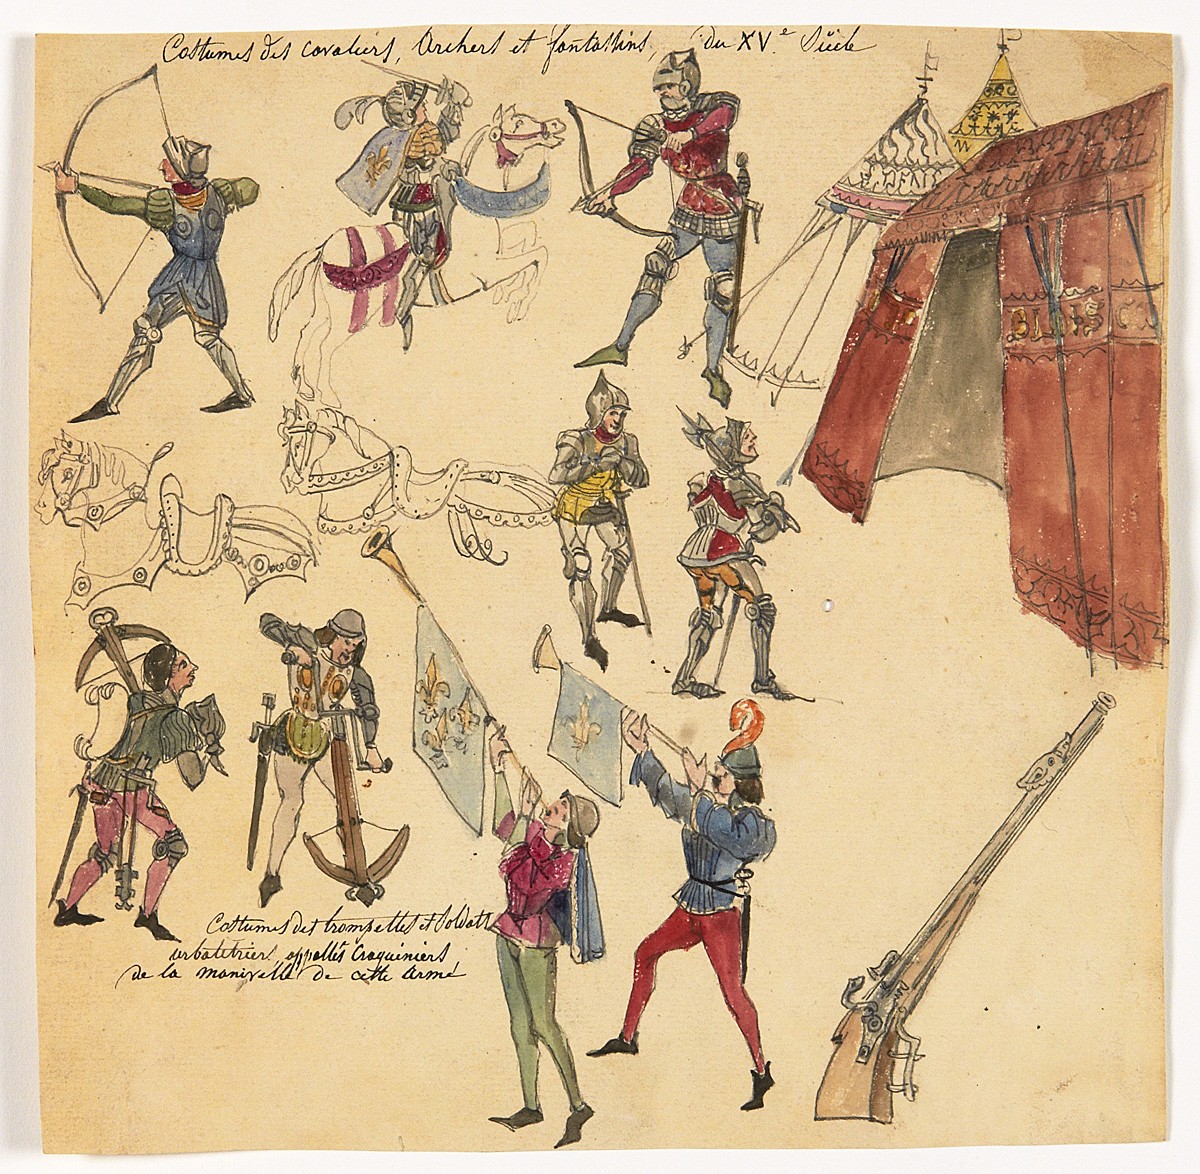 Costumes des cavaliers, Archers et fantassins, du XV.e Siècle
BLOIS C
Costumes des trompettes et Soldats
arbaletriers appellés Craquiniers
de la manivelle de cette armé